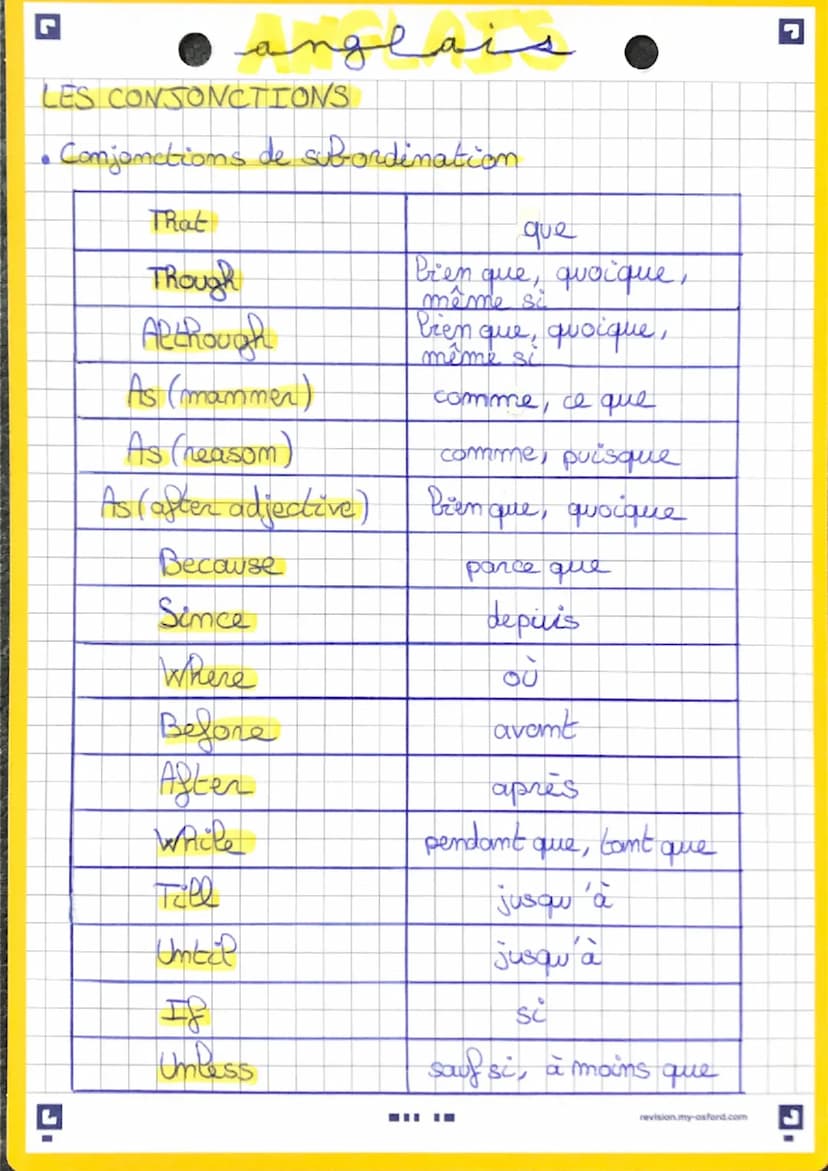 anglais
LES CONJONCTIONS
• Conjonctions de subordination
That
que
Though
bien que, quoique,
même si
Although
bien que, quoique,
même si
As (manner)
comme, ce que
As (reason)
comme, puisque
As (after adjective)
bien que, quoique
Because
parce que
Since
depuis
Where
où
Before
avant
After
après
While
pendant que, tant que
Till
jusqu'à
Until
jusqu'à
If
si
Unless
sauf si, à moins que
revision.my-oxford.com